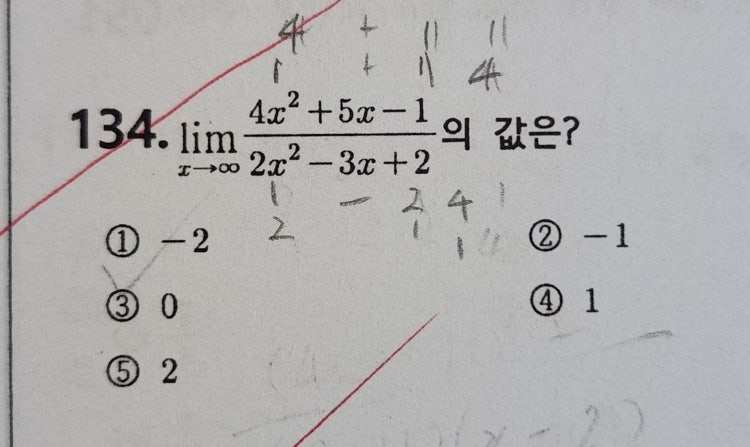 4 + 11 11
1 + 11 4
134. lim x→∞ (4x² + 5x − 1)/(2x² − 3x + 2) 의 값은?
1 − 2 4
2 1 1
① −2 ② −1
③ 0 ④ 1
⑤ 2